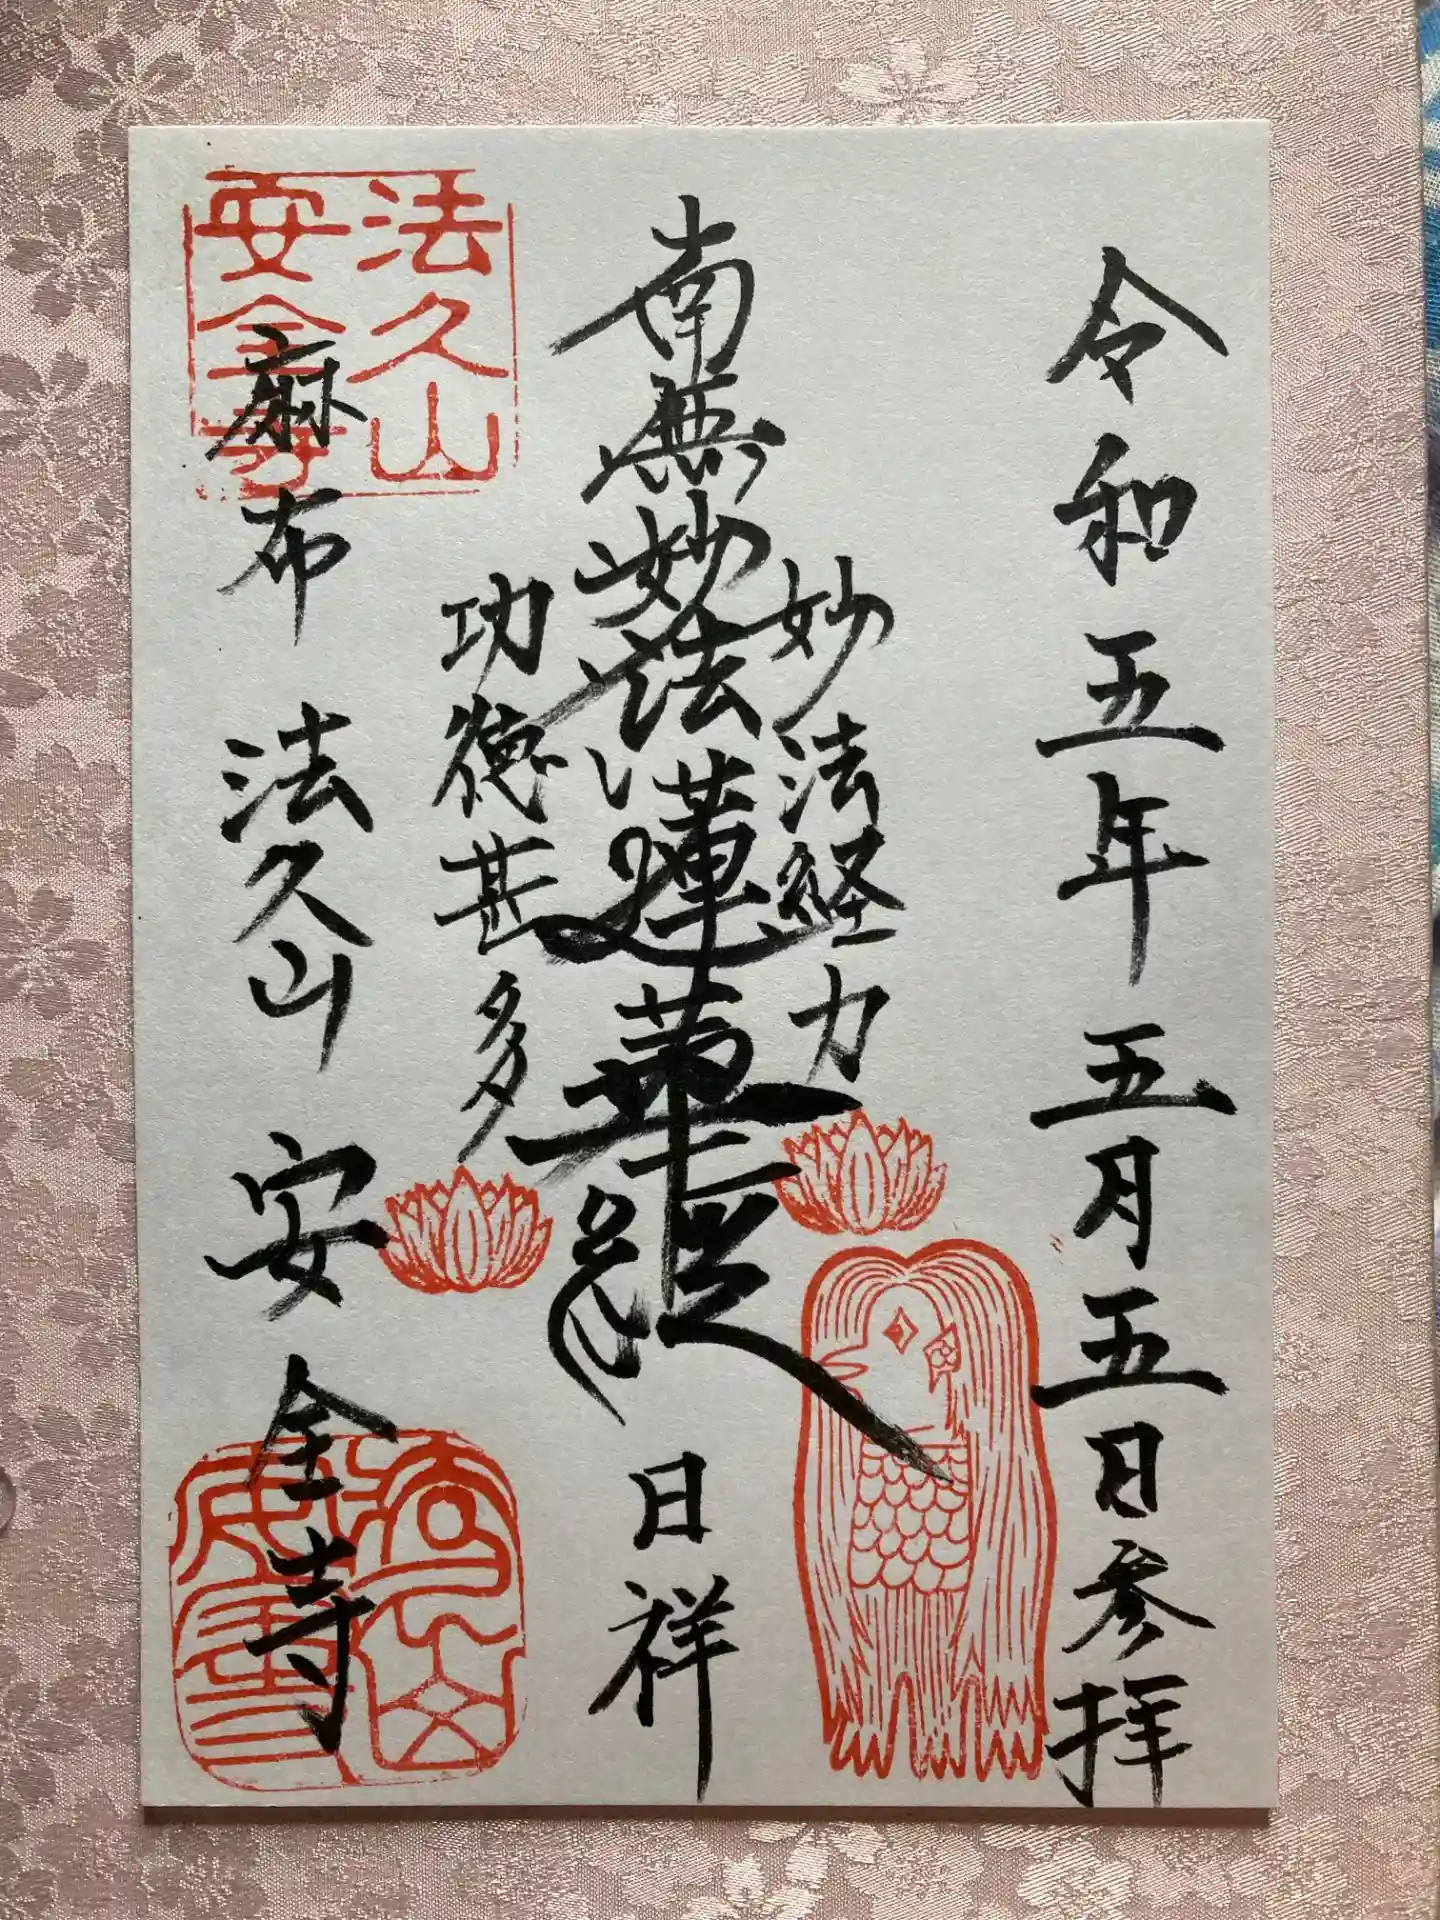 令和五年 五月五日参拝
妙法経力
南無妙法蓮華経 日祥
功徳甚多
麻布 法久山 安全寺
法久山
安全寺